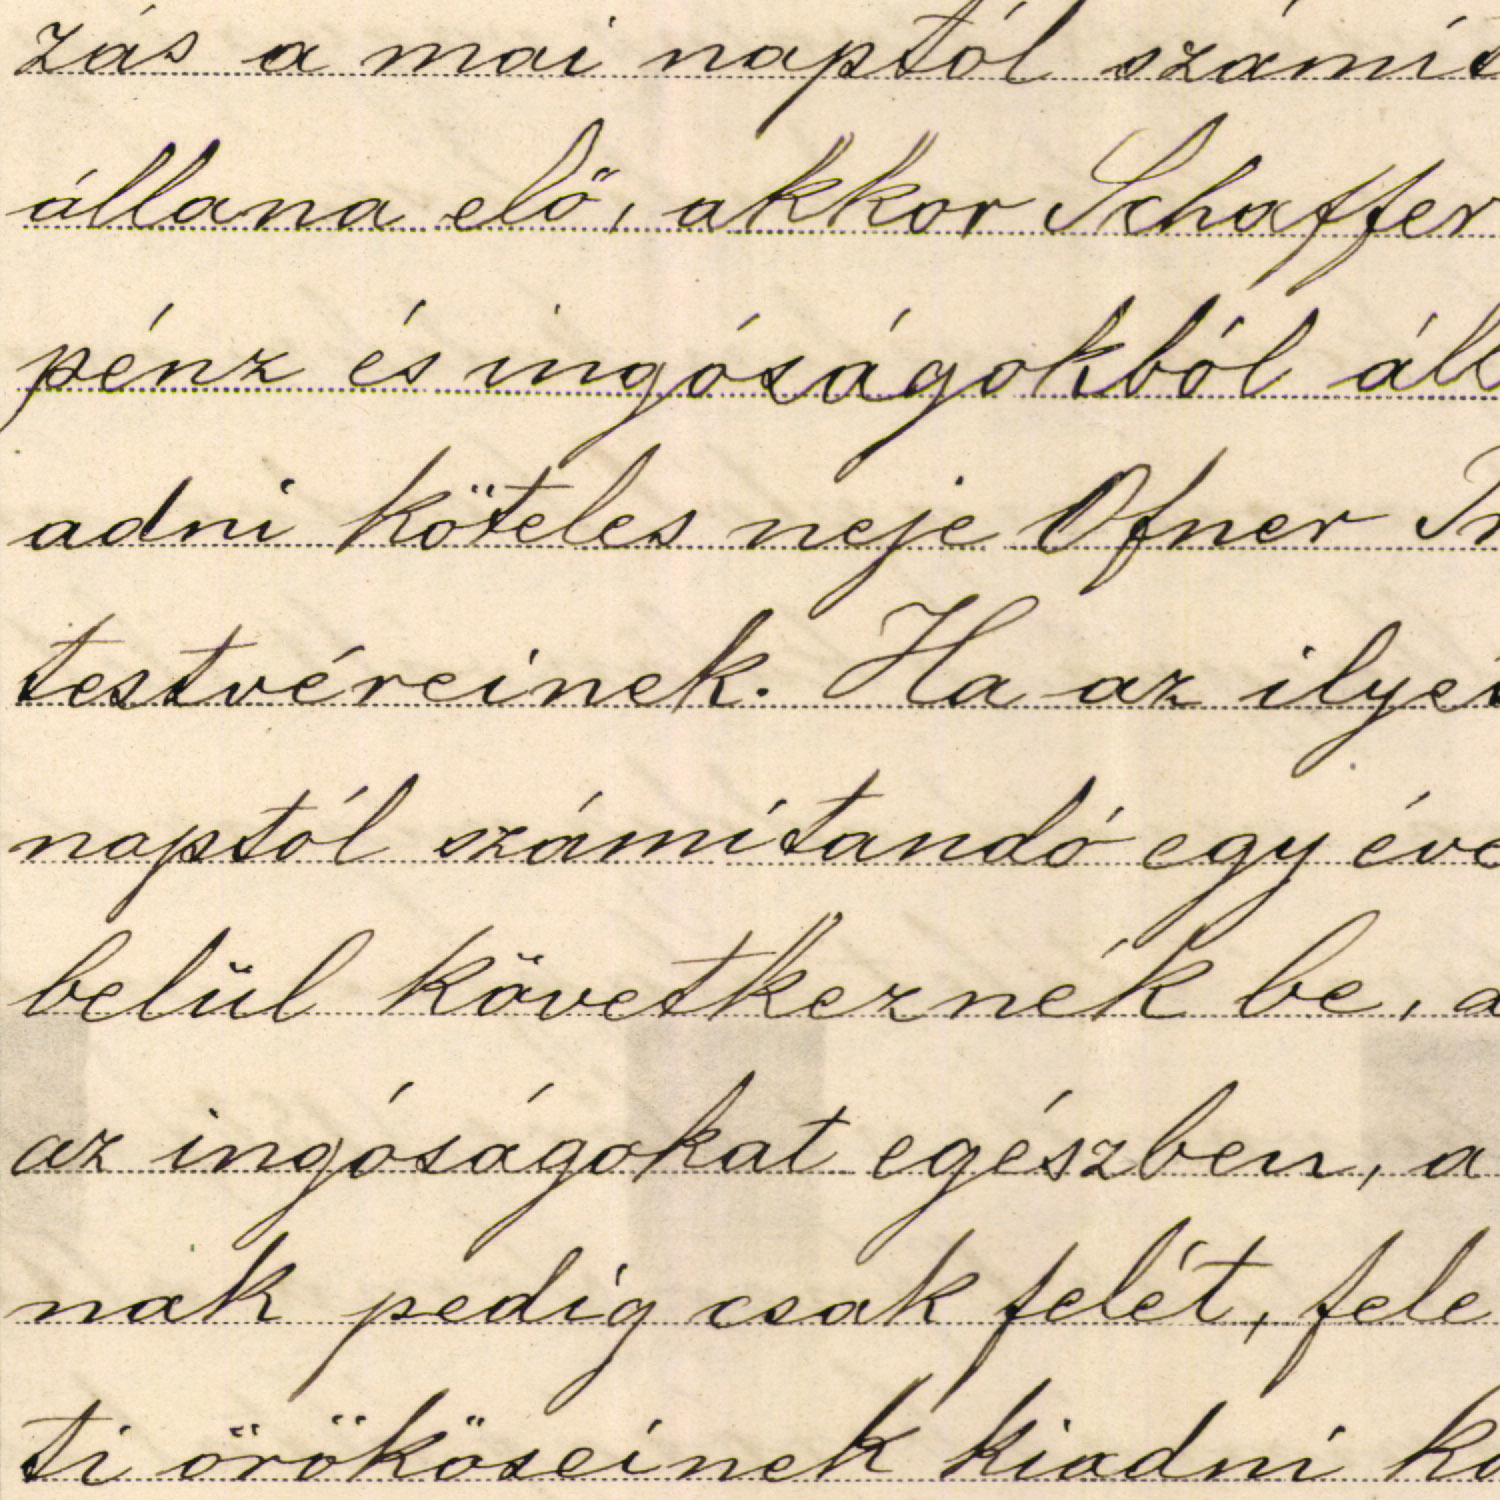 zás a mai naptól számít
állana elő, akkor Schaffer
pénz és ingóságokból áll
adni köteles neje Ofner
testvéreinek. Ha az ilye
naptól számítandó egy éve
belül következnék be, a
az ingóságokat egészben, a
nak pedig csak felét, fele
ti örököseinek kiadni kö